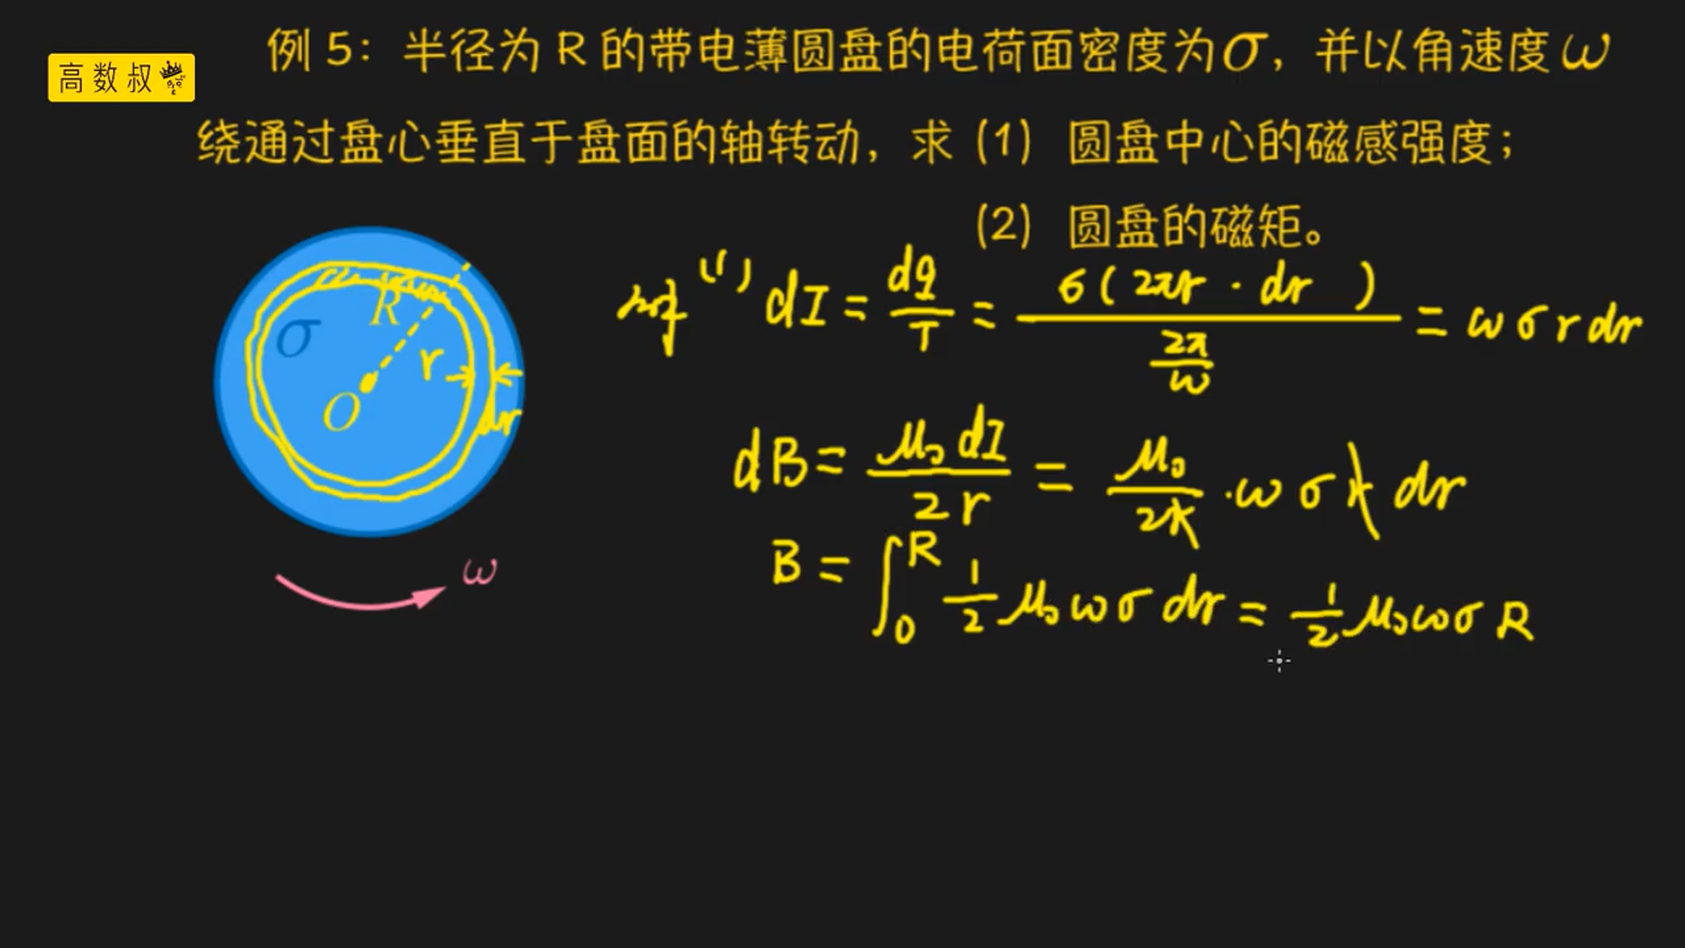 高数叔
例 5：半径为 R 的带电薄圆盘的电荷面密度为σ，并以角速度ω
绕通过盘心垂直于盘面的轴转动，求（1） 圆盘中心的磁感强度；
（2） 圆盘的磁矩。
(1) dI = dq/T = σ(2πr · dr)/(2π/ω) = ωσrdr
dB = μ₀dI/2r = μ₀/2r · ωσr dr
B = ∫₀ᴿ 1/2 μ₀ωσdr = 1/2 μ₀ωσR
R
σ
r
O
dr
ω